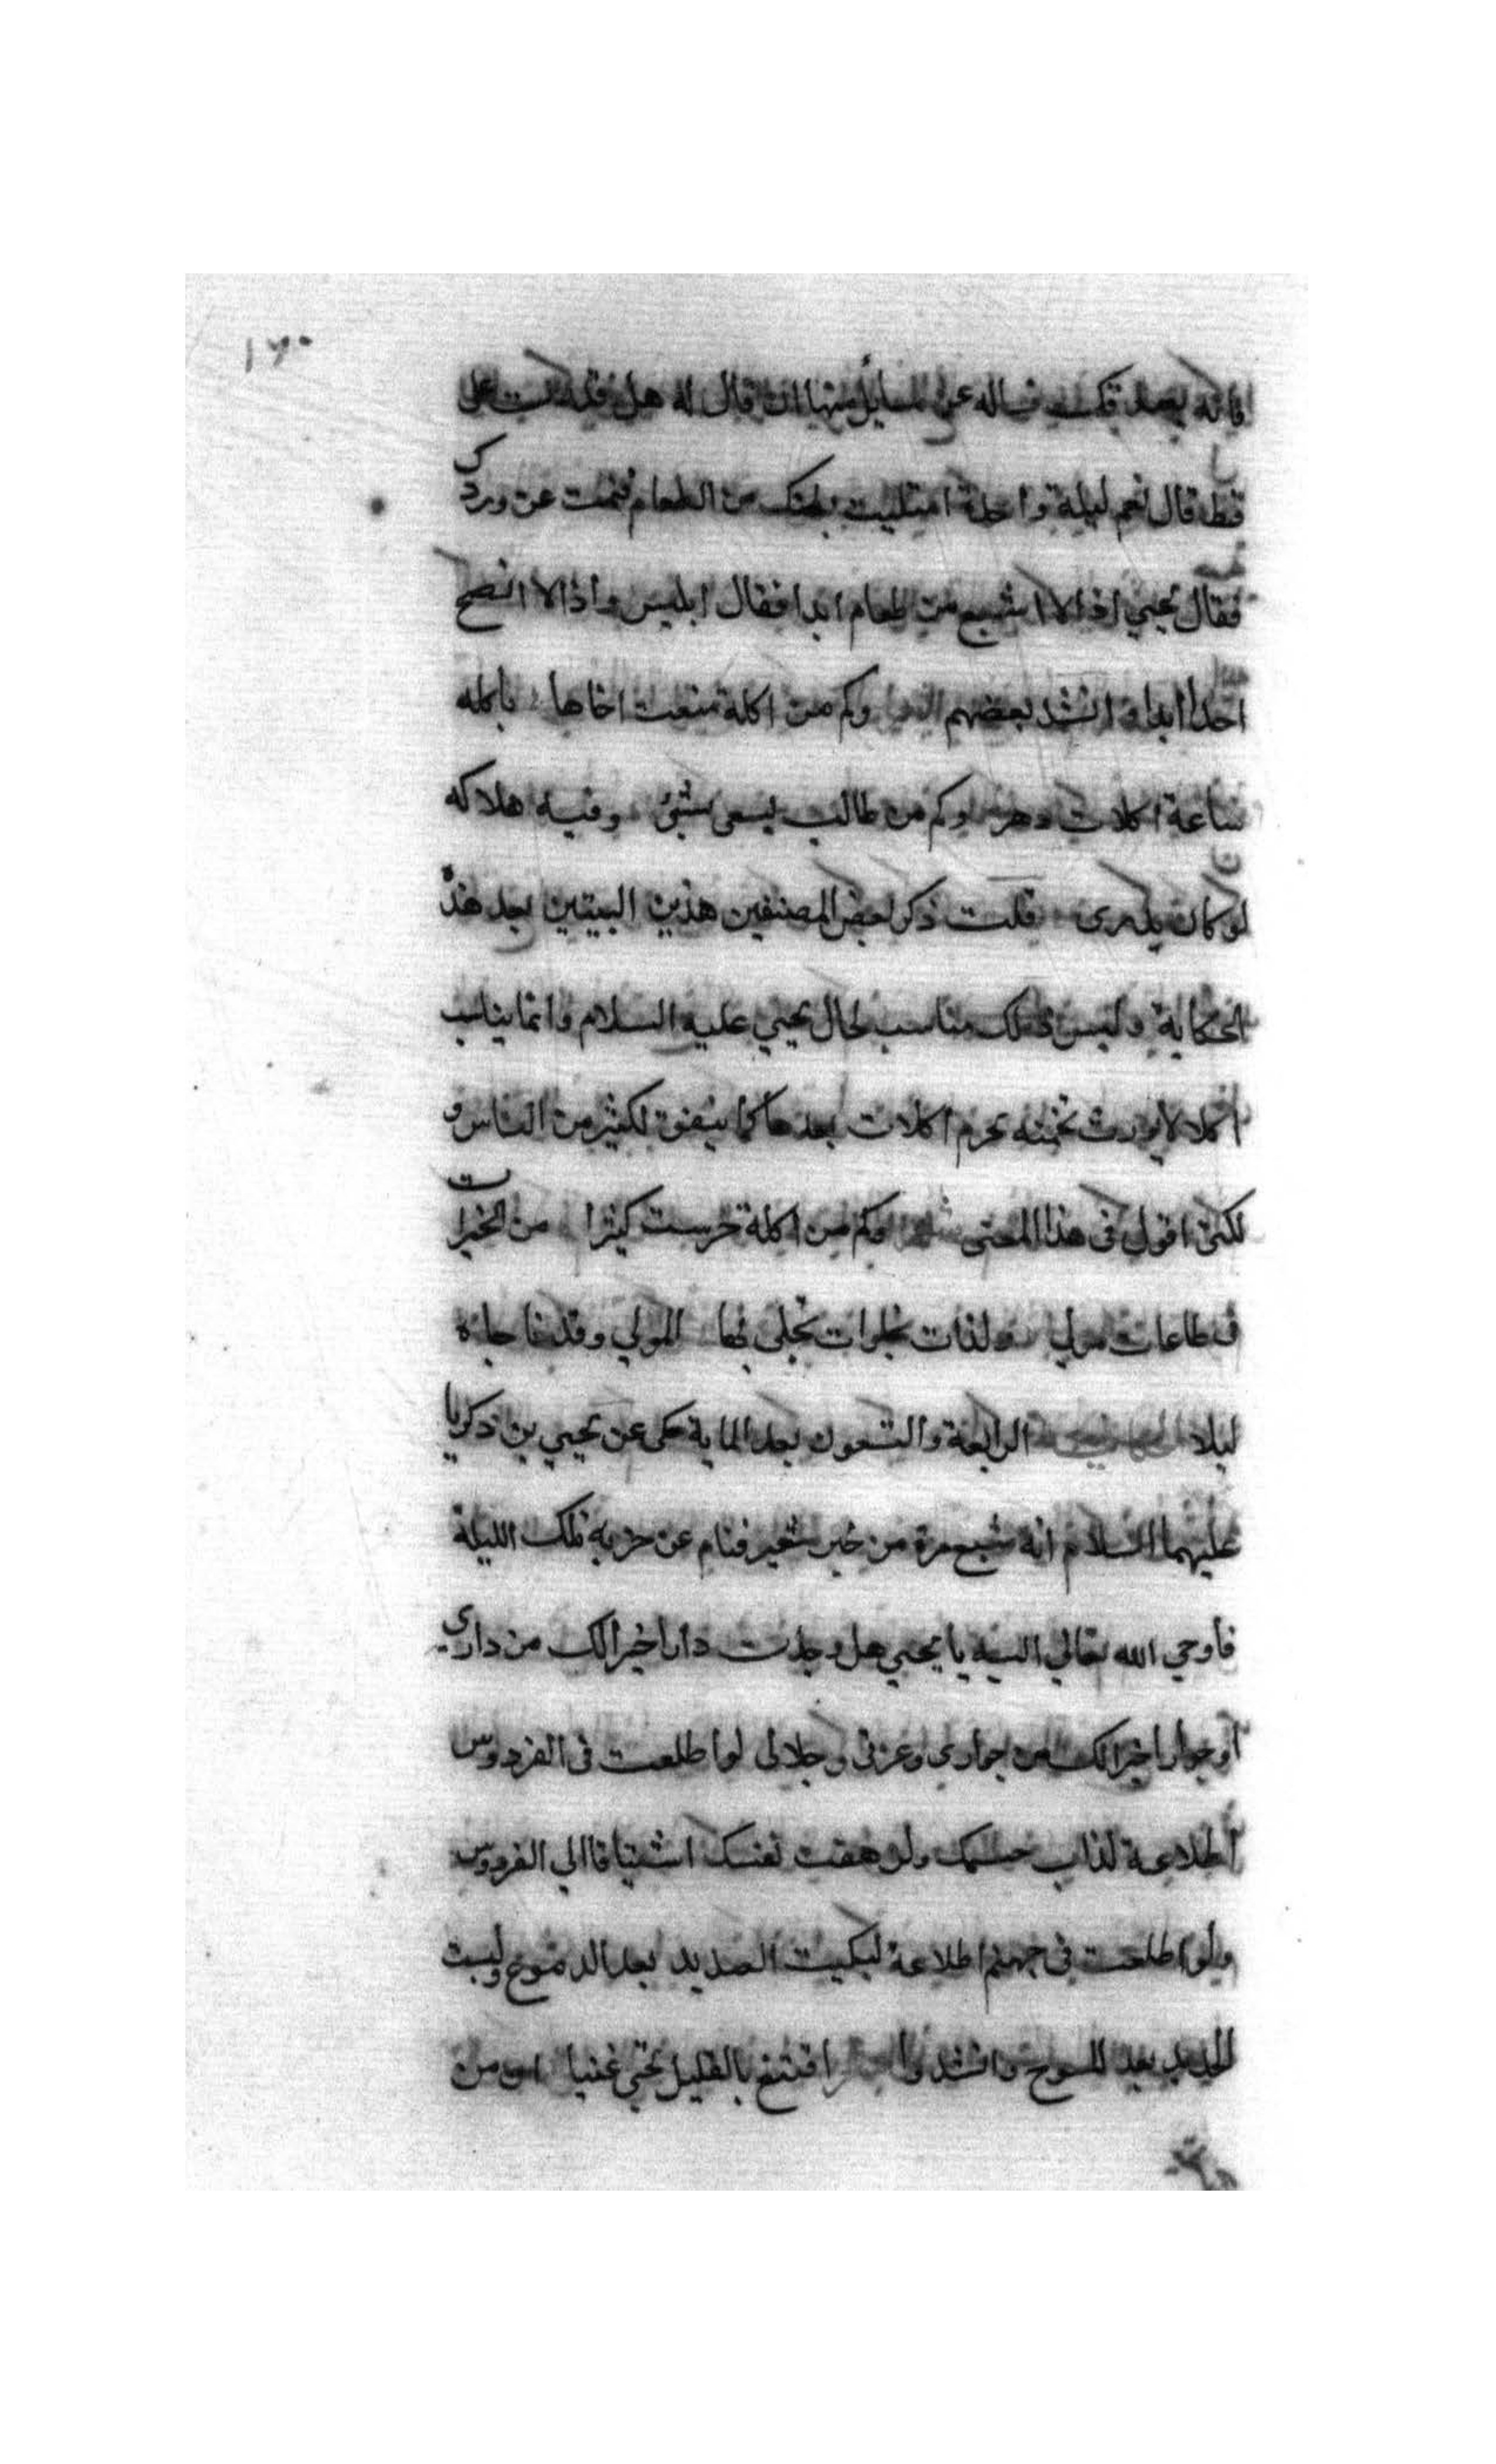 ١٦٠
فانه يصدقك فساله عن مسايل منها ان قال له هل قدرت على
قط قال نعم ليلة واحدة امتليت بطنك من الطعام فنمت عن وردك
فقال يحيي اذا لا اشبع من طعام ابدا فقال ابليس واذا لا انصح
احدا ابدا وانشد بعضهم وكم من اكلة منعت اخاها باكله
ساعة اكلات دهر وكم من طالب يسعى بشئ وفيه هلاكه
لو كان يدرى قلت ذكر بعض المصنفين هذين البيتين بعد هذه
الحكاية وليس ذلك مناسب لحال يحيي عليه السلام وانما يناسب
اكلا يورث تخمة تحرم اكلات بعدها كما يتفق لكثير من الناس و
لكنى اقول فى هذا المعنى شعر وكم من اكلة حرمت كثيرا من الخيرات
فى طاعات مولى ولذات بخلوات تجلى بها المولي وقد ناجاه
ليلا الرابعة والتسعون بعد الماية حكى عن يحيي بن زكريا
عليهما السلام انه شبع مرة من خبز شعير فنام عن حزبه تلك الليلة
فاوحي الله تعالي اليه يا يحيي هل وجدت دارا خيرا لك من داري
او جوارا خيرا لك من جواري وعزتى وجلالى لو اطلعت فى الفردوس
اطلاعة لذاب جسمك ولزهقت نفسك اشتياقا الي الفردوس
ولو اطلعت فى جهنم اطلاعة لبكيت الصديد بعد الدموع ولبست
الحديد بعد المسوح وانشدوا اقتنع بالقليل تحيي غنيا ان من